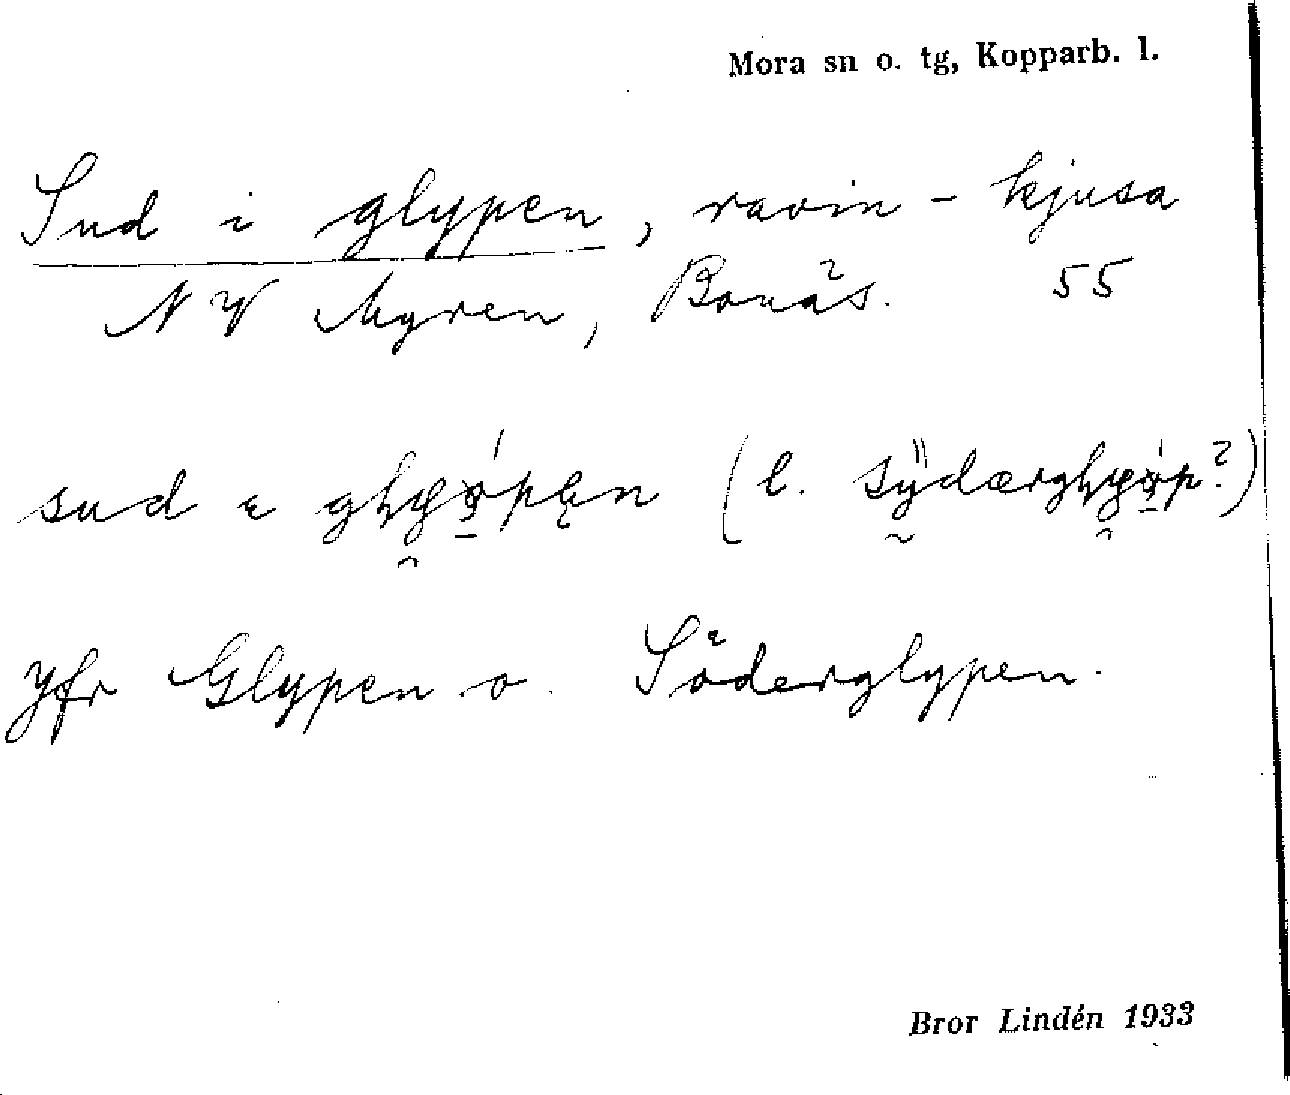 Mora sn o. tg, Kopparb. l.
Sud i glypen, ravin - kjusa
NV Myren, Bonäs. 55
sud (l.
Jfr Glypen o. Söderglypen.
Bror Lindén 1933